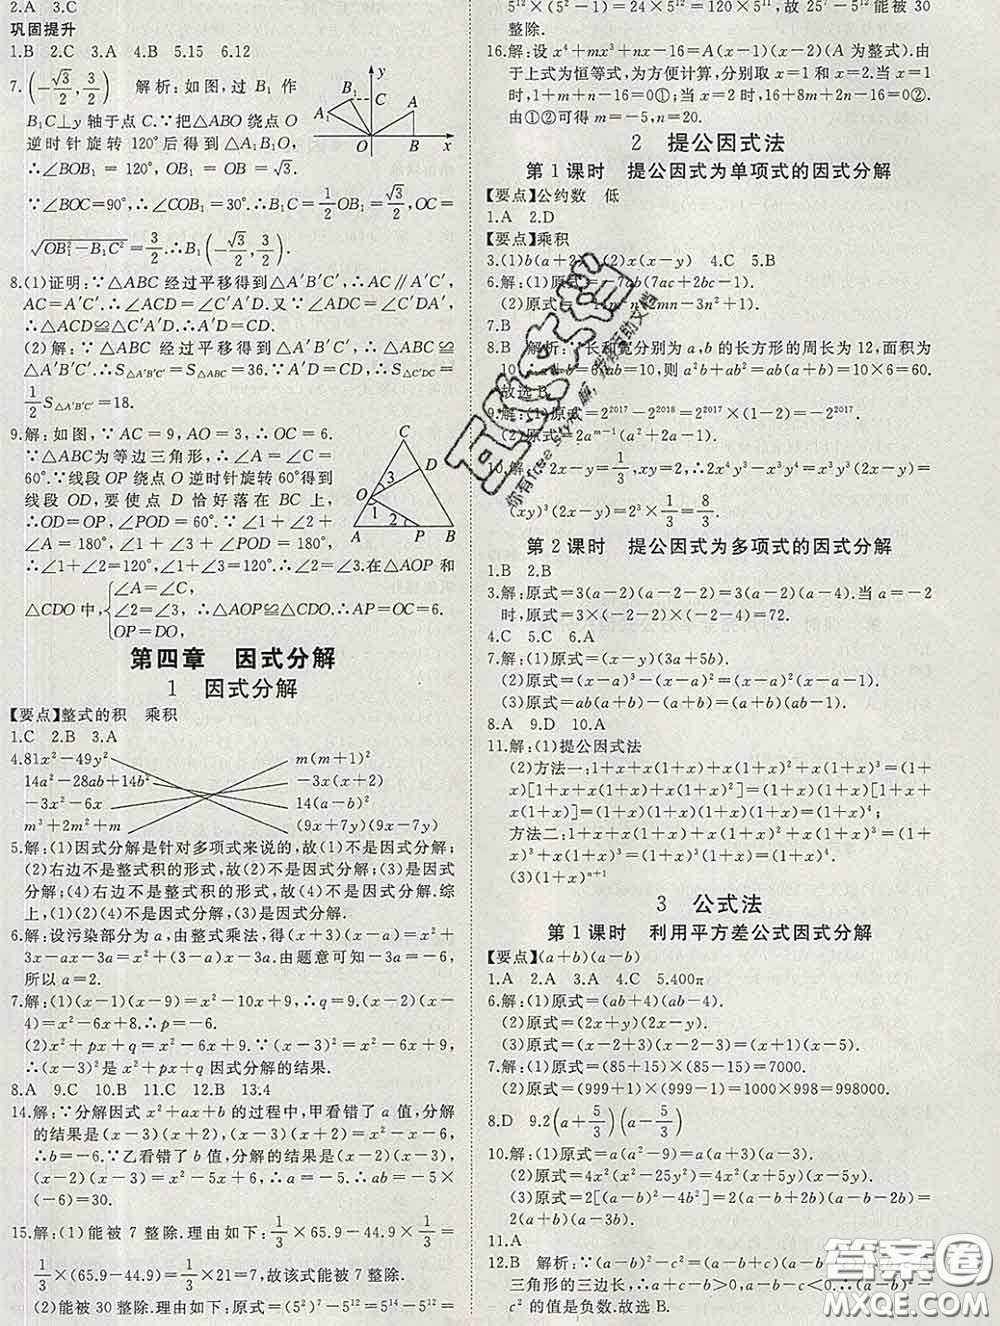 2.A　3.C
巩固提升
1.B　2.C　3.A　4.B　5.15　6.12
7.(-√3/2, 3/2)　解析:如图,过 B₁ 作
B₁C⊥y 轴于点 C.∵把△ABO 绕点 O
逆时针旋转 120°后得到△A₁B₁O,
∴∠BOB₁=120°,OB₁=OB=√3.
∵∠BOC=90°,∴∠COB₁=30°.∴B₁C=1/2OB₁=√3/2,OC=
√(OB₁²-B₁C²)=3/2.∴B₁(-√3/2, 3/2).
y
B₁
C
A₁
A
O
B
x
8.(1)证明:∵△ABC 经过平移得到△A′B′C′,∴AC∥A′C′,
AC=A′C′.∴∠ACD=∠C′A′D.又∵∠ADC=∠C′DA′,
∴△ACD≌△C′A′D.
(2)解:∵△ABC 经过平移得到△A′B′C′,△ACD≌
△C′A′D.∴S△A′B′C′=S△ABC=36.∵△ACD≌△C′A′D,∴S△C′DC=
1/2S△A′B′C′=18.
9.解:如图,∵AC=9,AO=3,∴OC=6.
∵△ABC为等边三角形,∴∠A=∠C=
60°.∵线段OP绕点O逆时针旋转60°得到
线段 OD,要使点 D 恰好落在 BC 上,
∴OD=OP,∠POD=60°.∵∠1+∠2+
∠A=180°,∠1+∠3+∠POD=180°,
∴∠1+∠2=∠1+∠3.∴∠2=∠3.在△AOP 和
△CDO中,{∠A=∠C, ∠2=∠3, OP=DO, ∴△AOP≌△CDO.∴AP=OC=6.
C
D
3
O
1
2
A
P
B
第四章　因式分解
1　因式分解
【要点】整式的积　乘积
1.C　2.B　3.A
4.81x²-49y²　m(m+1)²
14a²-28ab+14b²　-3x(x+2)
-3x²-6x　14(a-b)²
m³+2m²+m　(9x+7y)(9x-7y)
5.解:(1)因式分解是针对多项式来说的,故(1)不是因式分解;
(2)右边不是整式积的形式,故(2)不是因式分解;(3)是因式
分解;(4)右边不是整式积的形式,故(4)不是因式分解.综
上,(1)(2)(4)不是因式分解,(3)是因式分解.
6.解:设污染部分为 a,由整式乘法,得(x+3)(x-a)=x²+
3x-ax-3a=x²+(3-a)x-3a.由题意可知-3a=-6,
所以 a=2.
7.解:(1)(x-1)(x-9)=x²-10x+9,∴q=9.(x-2)(x-
4)=x²-6x+8,∴p=-6.
(2)x²+px+q=x²-6x+9.∵(x-3)²=x²-6x+9,
∴(x-3)²是 x²+px+q 因式分解的结果.
8.A　9.C　10.B　11.C　12.B　13.4
14.解:∵分解因式 x²+ax+b 的过程中,甲看错了 a 值,分解
的结果是(x-3)(x+2),(x-3)(x+2)=x²-x-6,
∴b=-6.∵乙看错了 b 值,分解的结果是(x-2)(x-3),
(x-2)(x-3)=x²-5x+6,∴a=-5.∴ab=-5×
(-6)=30.
15.解:(1)能被 7 整除.理由如下:1/3×65.9-44.9×1/3=
1/3×(65.9-44.9)=1/3×21=7,故该式能被 7 整除.
(2)能被 30 整除.理由如下:原式=(5²)⁷-5¹²=5¹⁴-5¹²=
5¹²×(5²-1)=24×5¹²=120×5¹¹,故 25⁷-5¹²能被 30
整除.
16.解:设 x⁴+mx³+nx-16=A(x-1)(x-2)(A 为整式).由
于上式为恒等式,为方便计算,分别取 x=1 和 x=2.当 x=1
时,1+m+n-16=0①;当 x=2 时,16+8m+2n-16=0②.
由①②可得 m=-5,n=20.
2　提公因式法
第 1 课时　提公因式为单项式的因式分解
【要点】公约数　低
1.A　2.D
【要点】乘积
3.(1)b(a+2)　(2)x(x-y)　4.C　5.B
6.解:(1)原式=-7ab(7ac+2bc-1).
(2)原式=-14m²n(2mn-3n²+1).
7.B
8.B　解析:∵长和宽分别为 a,b 的长方形的周长为 12,面积为
10, ab=10,则 a²b+ab²=ab(a+b)=10×6=60.
故选 B.
9.解:(1)原式=2²⁰¹⁷-2²⁰¹⁸=2²⁰¹⁷×(1-2)=-2²⁰¹⁷.
(2)原式=2aᵐ⁻¹(a²+2a-1).
10.解:∵2x-y=1/3,xy=2,∴2x⁴y³-x³y⁴=x³y³(2x-y)=
(xy)³(2x-y)=2³×1/3=8/3.
第 2 课时　提公因式为多项式的因式分解
1.B　2.B
3.解:原式=3(a-2)(2a-2-a)=3a(a-2).当 a=-2
时,原式=3×(-2-2)×(-2-2+...)=72.
4.C　5.C　6.A
7.解:(1)原式=(x-y)(3a+5b).
(2)原式=(x-a)²(x-a-x)=-a(x-a)².
(3)原式=ab(a+b)-(a+b)=(a+b)(ab-1).
8.A　9.D　10.A
11.解:(1)提公因式法
(2)方法一:1+x+x(1+x)+x(1+x)²+x(1+x)³=(1+
x)[1+x+x(1+x)+x(1+x)²]=(1+x)(1+x)[1+x+
x(1+x)]=(1+x)(1+x)(1+x)(1+x)=(1+x)⁴;
方法二:1+x+x(1+x)+x(1+x)²+x(1+x)³=(1+x)⁴.
(3)(1+x)ⁿ⁺¹
3　公式法
第 1 课时　利用平方差公式因式分解
【要点】(a+b)(a-b)
1.A　2.A　3.A　4.C　5.400π
6.解:(1)原式=(ab+4)(ab-4).
(2)原式=(2x+y)(2x-y).
(3)原式=(x-2+3)(x-2-3)=(x+1)(x-5).
7.解:(1)原式=(85+15)×(85-15)=7000.
(2)原式=(999+1)×(999-1)=1000×998=998000.
8.D　9.2(a+5/3)(a-5/3)
10.解:(1)原式=a(a²-9)=a(a+3)(a-3).
(2)原式=4x²(x²-25y²)=4x²(x+5y)(x-5y).
(3)原式=2[(a-b)²-4b²]=2(a-b+2b)(a-b-2b)=
2(a+b)(a-3b).
11.A
12.B　解析:∵(a-b)²-c²=(a-b+c)(a-b-c),
三角形的三边长,∴a+c-b>0,a-b-c<0.∴(a-b)²-
c² 的值是负数.故选 B.
答案圈
MXQE.COM